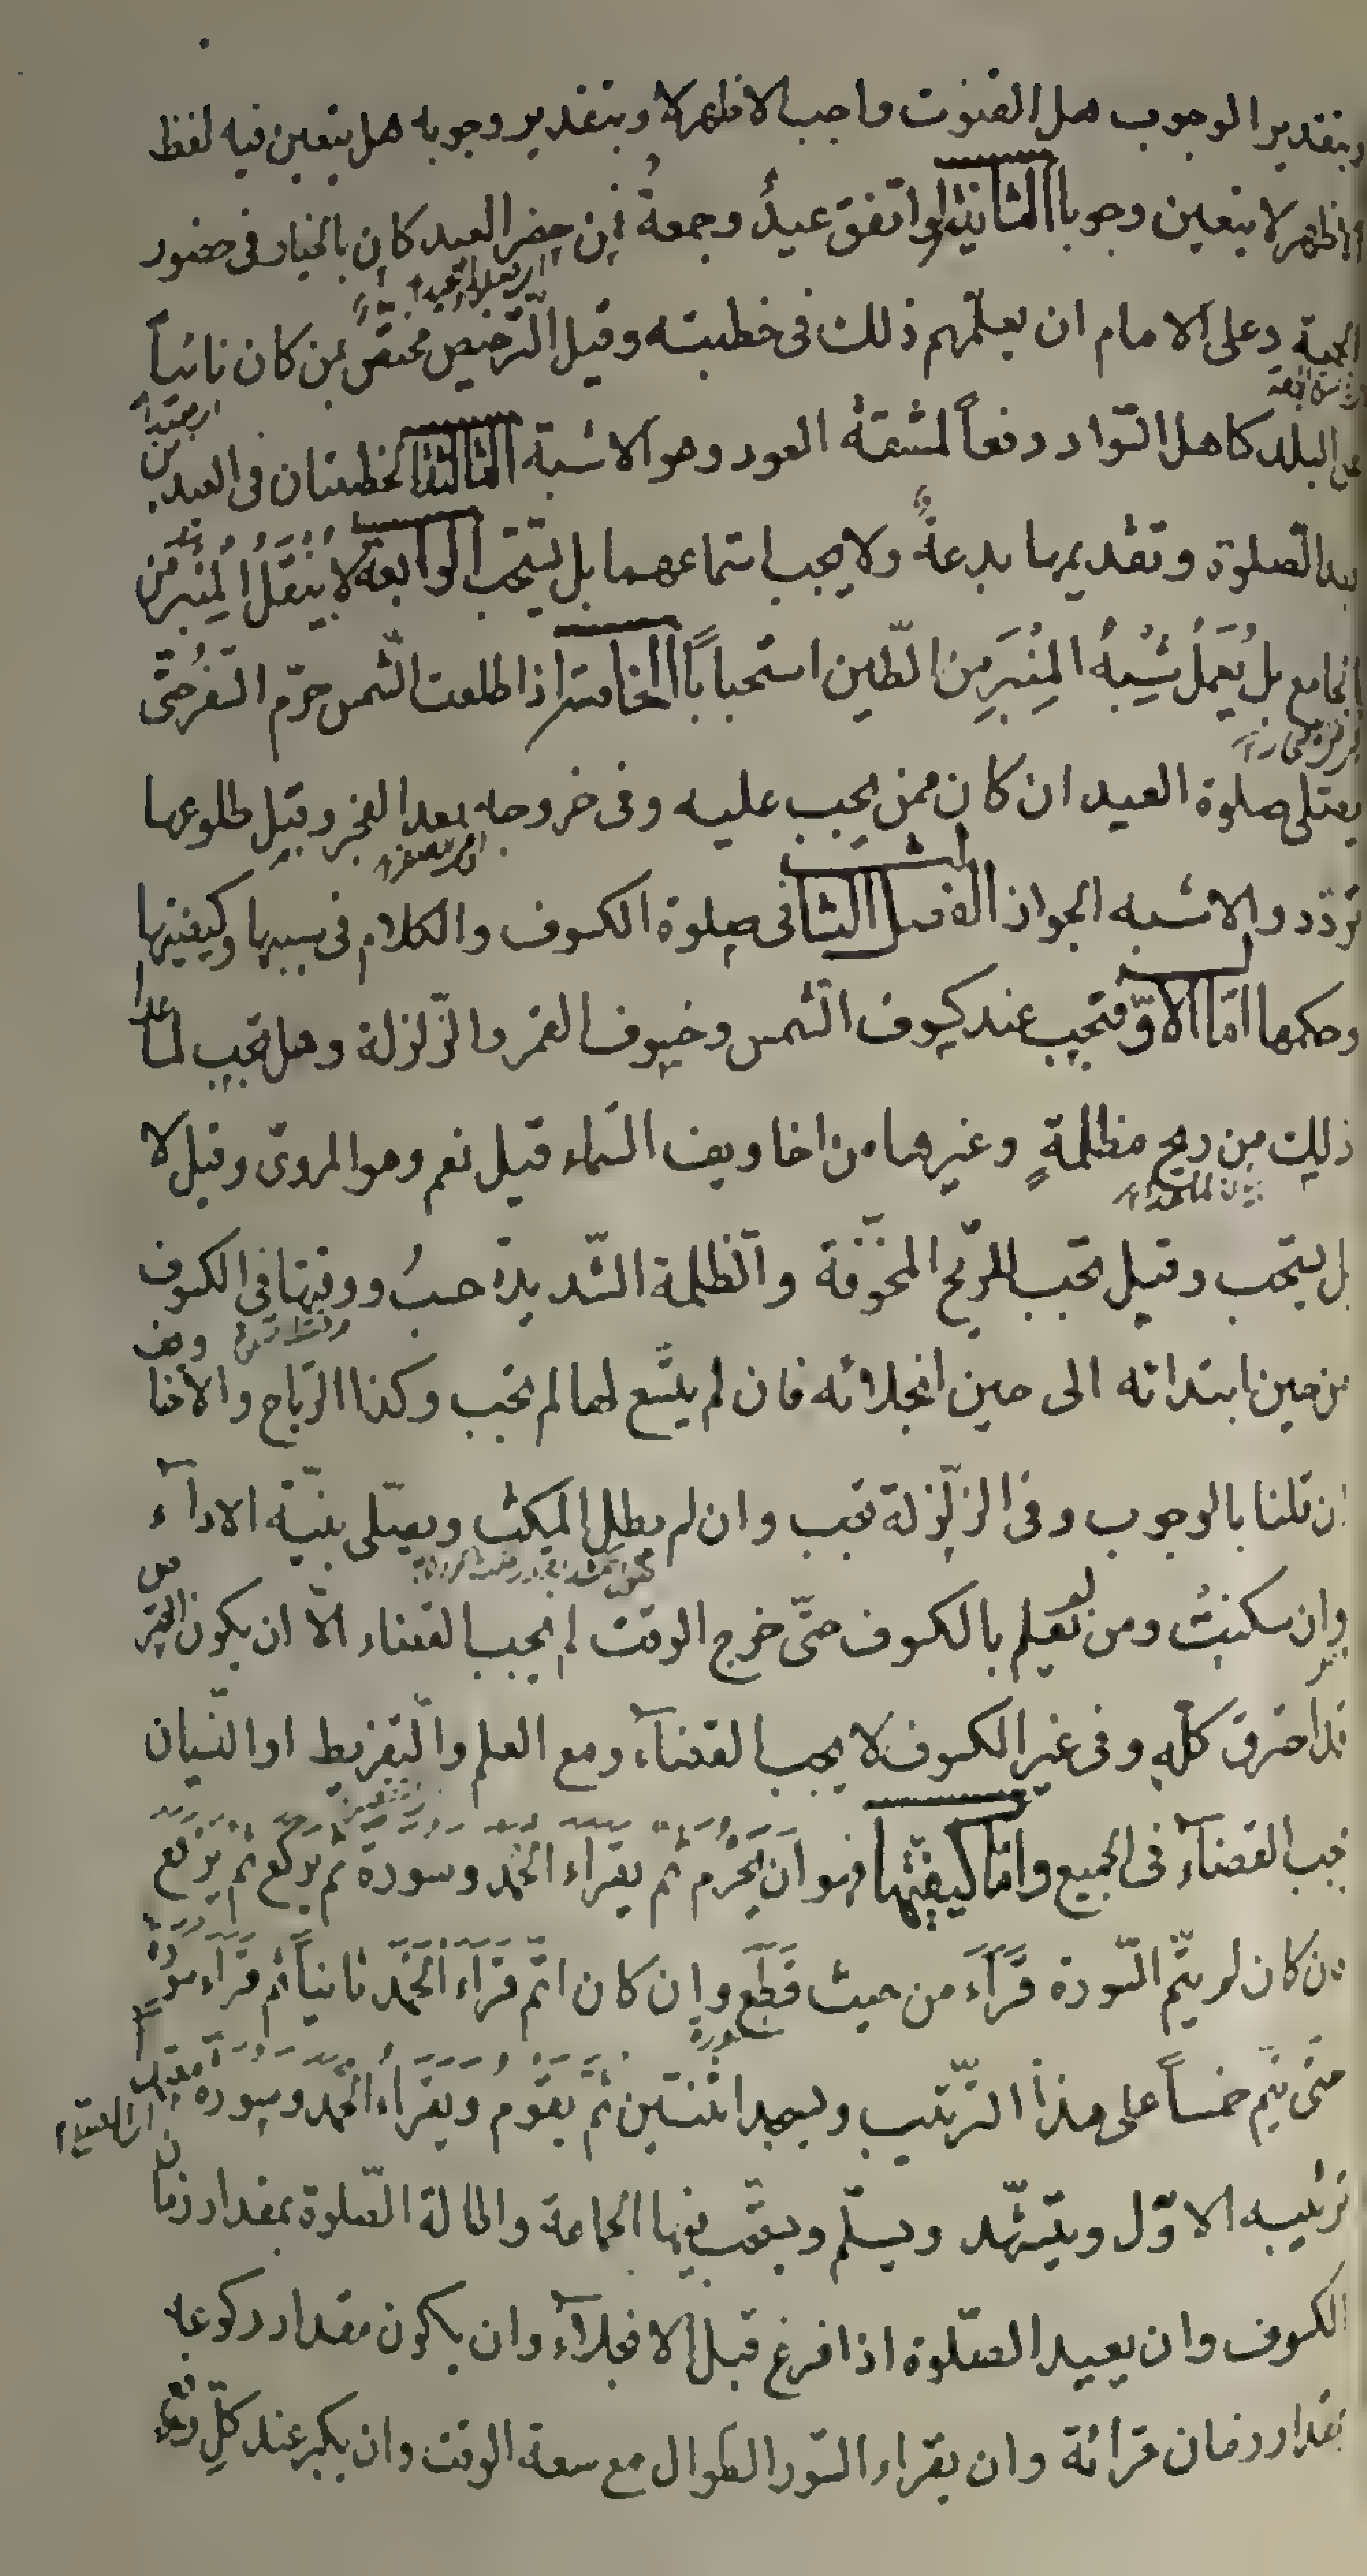 وبتقدير الوجوب هل القنوت واجب الاظهر لا وبتقدير وجوبه هل يتعين فيه لفظ
الاظهر لا يتعين وجوبا الثانية لو اتفق عيدٌ وجمعةٌ فمن حضر العيد كان بالخيار فى حضور
الجمعة وعلى الامام ان يعلّمهم ذلك فى خطبته وقيل التّرخيص مختصّ بمن كان نائياً
عن البلد كاهل السّواد دفعاً لمشقة العود وهو الاشبه الثالثة الخطبتان فى العيدين
بعد الصّلوة وتقديمها بدعةٌ ولا يجب استماعهما بل يستحب الرابعة لا يُنقَلُ المِنبَر من
الجامع بل يُعمَلُ شِبهُ المِنبَرِ مِنَ الطّين استحباباً الخامسة اذا طلعت الشّمس حرّم السّفر حتّى
يصلى صلوة العيد ان كان ممن يجب عليه وفى خروجه بعد الفجر وقبل طلوعها
تردّد والاشبه الجواز الفصل الثانى فى صلوة الكسوف والكلام فى سببها وكيفيتها
وحكمها امّا الاوّل فتجب عند كسوف الشّمس وخسوف القمر والزّلزلة وهل تجب لما عدا
ذلك من ريح مظلمةٍ وغيرها من اخاويف السّماء قيل نعم وهو المروىّ وقيل لا
بل يستحب وقيل تجب للرّيح المخوّفة والظّلمة الشّديدة حسبُ ووقتها فى الكسوف
من حين ابتدائه الى حين انجلائه فان لم يتّسع لها لم تجب وكذا الرّياح والاخاويف
ان قلنا بالوجوب وفى الزّلزلة تجب وان لم يطل المكث ويصلّى بنيّة الاداء
وان سكنت ومن لم يعلم بالكسوف حتّى خرج الوقت لم يجب القضاء الّا ان يكون القرص
قد احترق كلّه وفى غير الكسوف لا يجب القضاء ومع العلم والتّفريط او النّسيان
يجب القضاء فى الجميع وامّا كيفيّتها فهو ان يُحرم ثم يقراء الحَمد وسورة ثم يركع ثم يرفع
فان كان لم يتمّ السّورة قَرَاَء من حيث قَطَع وان كان اتمّ قَرَاَءَ الحَمدَ ثانياً ثم قَرَاَء سورةً
سورة
حتى يتمّ خمساً على هذا التّرتيب ويسجد اثنتين ثمّ يقوم ويقراء الحمد وسورة معتمداً
ترتيبه الاوّل ويتشهّد ويسلّم ويستحب فيها الجماعة واطالة الصّلوة بمقدار زمان
الكسوف وان يعيد الصّلوة اذا فرغ قبل الانجلاء وان يكون مقدار ركوعه
بمقدار زمان قرائة وان يقراء السّور الطوال مع سعة الوقت وان يكبر عند كلّ رفع